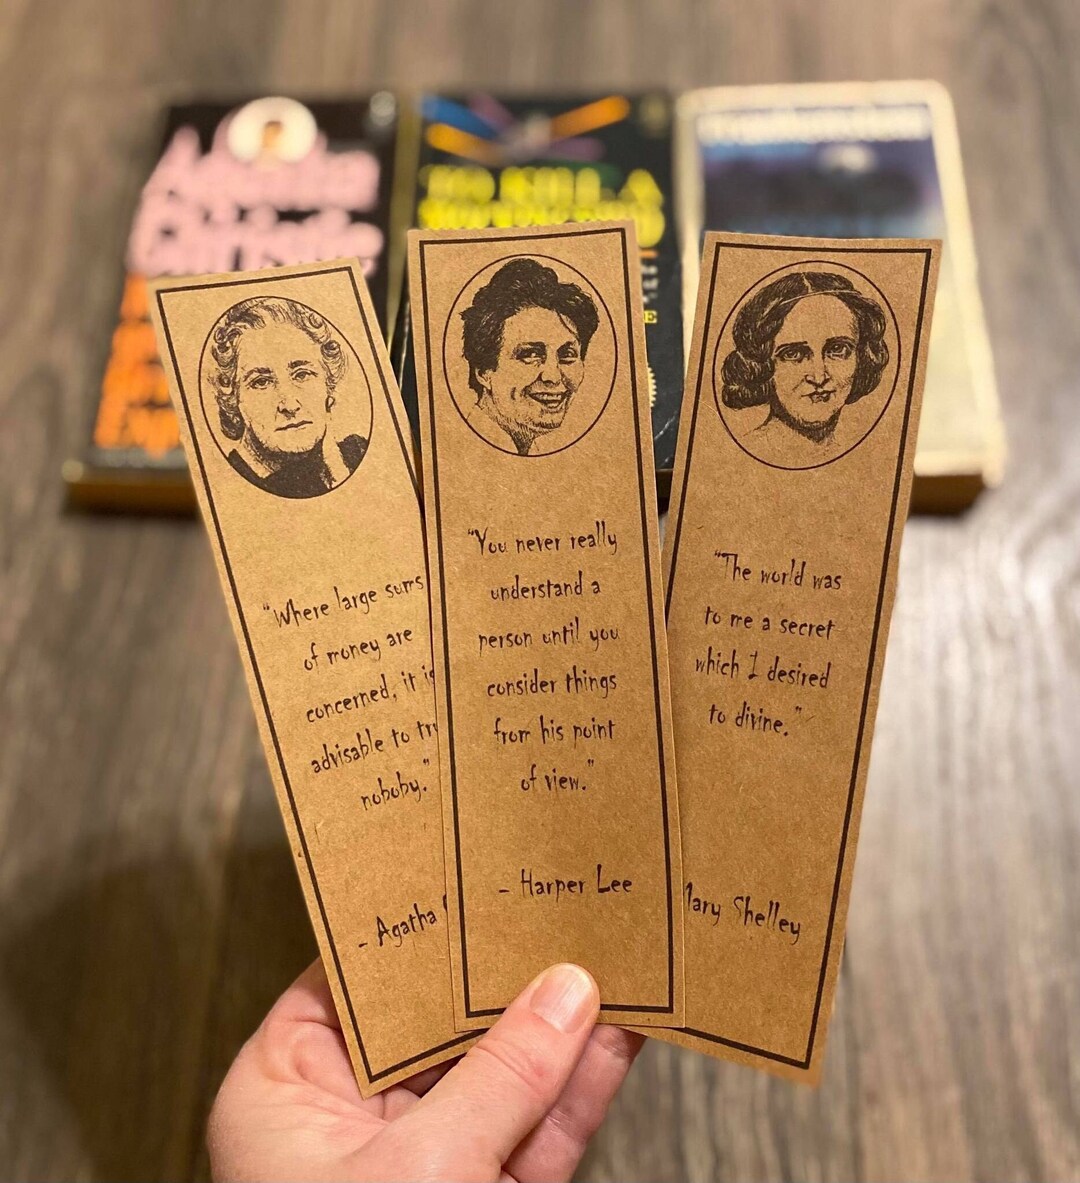 TO KILL A
"Where large sums
of money are
concerned, it is
advisable to
noboby."
- Agatha
"You never really
understand a
person until you
consider things
from his point
of view."
- Harper Lee
"The world was
to me a secret
which I desired
to divine."
Shelley